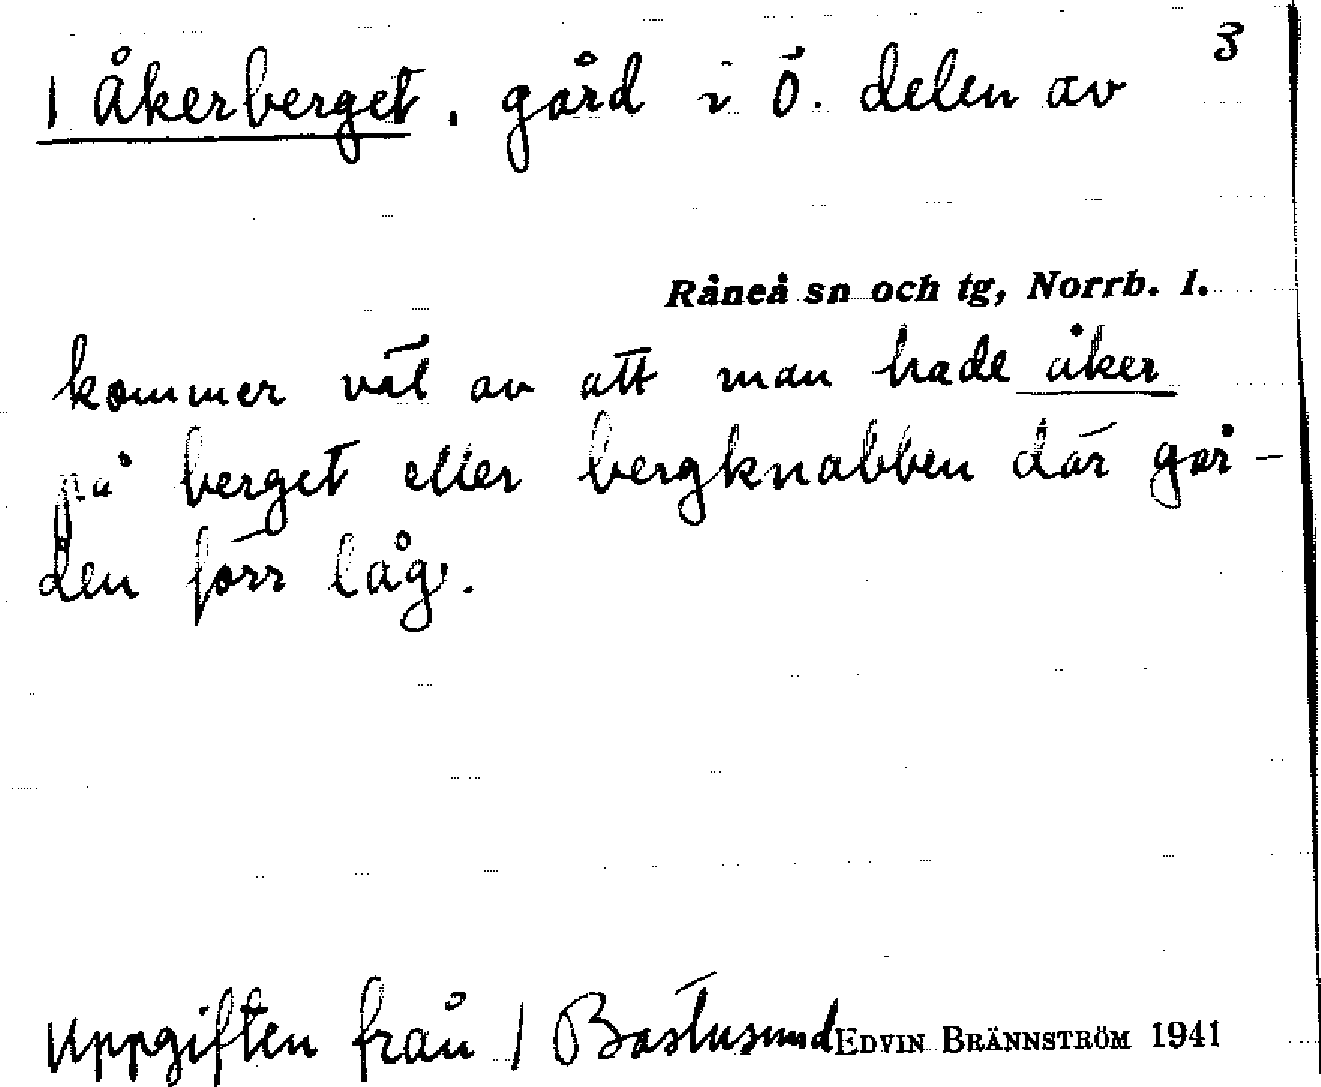 3
1 Åkerberget, gård i Ö. delen av
Råneå sn och tg, Norrb. l.
kommer väl av att man hade åker
på berget eller bergknabben där går-
den förr låg.
Uppgiften från / Bastusund EDVIN BRÄNNSTRÖM 1941